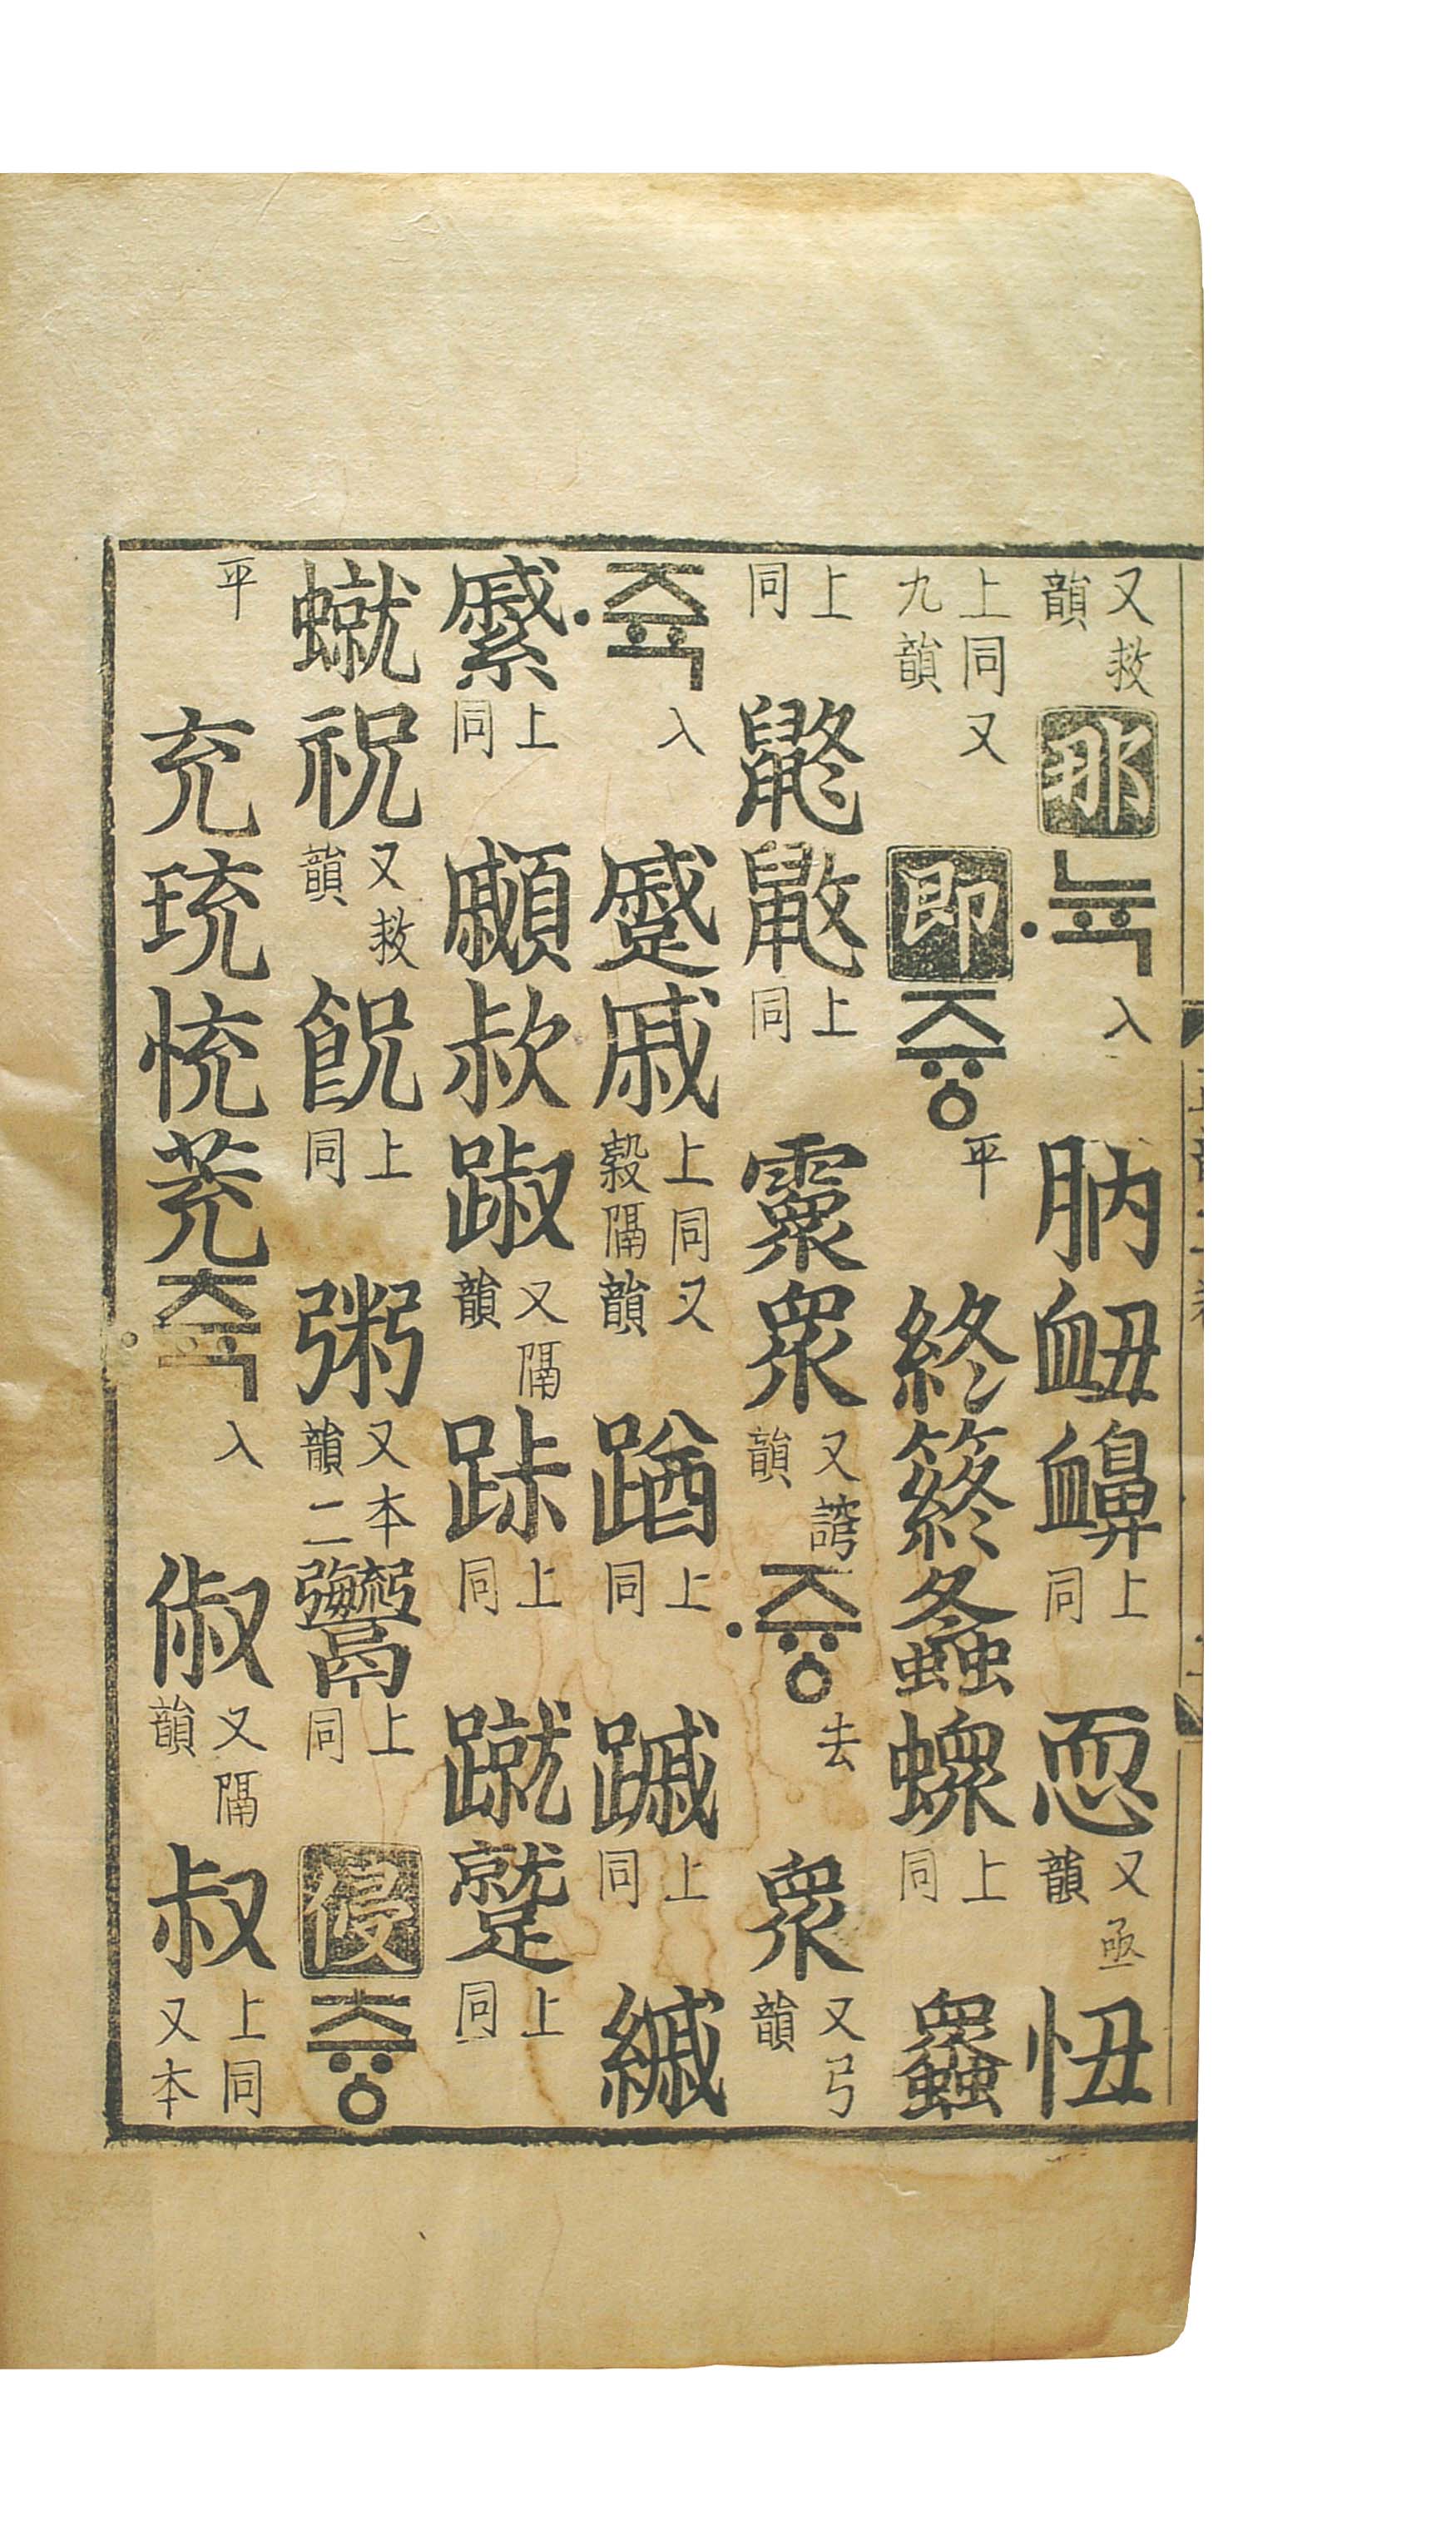 又救韻 那 ·뉵 入 肭 衄 上同 恧 又亟韻 忸
上同又九韻 即 즁 平 終 螽 上同
上同 鼨 上同 霥 衆 又韻 ·즁 去 衆 又弓韻
·쥭 入 蹙 戚 上同又穀隔韻 上同 䠞 上同 縬
上同 顣 踧 又隔韻 上同 蹴 蹵 上同
祝 又救韻 上同 粥 又本韻二 鬻 上同 侵 츙
平 充 珫 㤝 茺 ·츅 入 俶 又隔韻 叔 上同又本